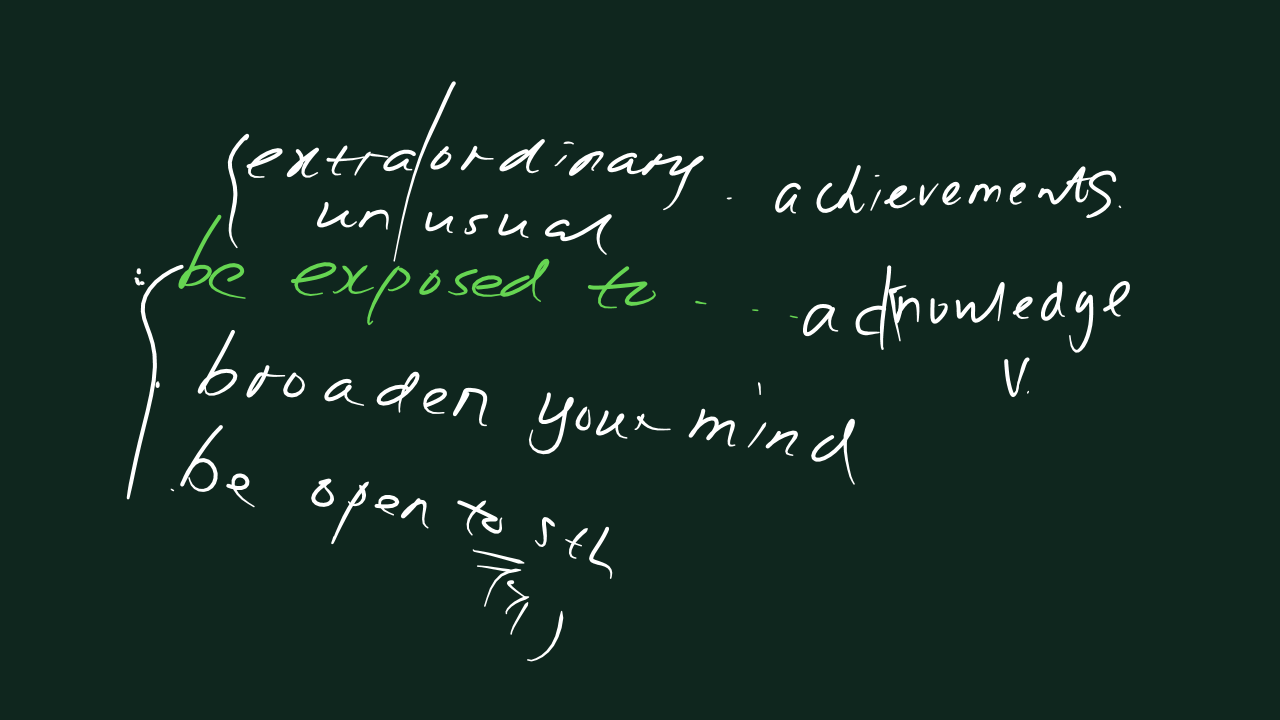 extra/ordinary. achievements.
un/usual
be exposed to ... acknowledge
v.
broaden your mind
be open to sth